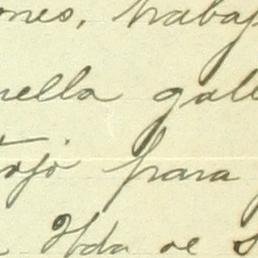 ones, trabaj
nella gall
tojo para
Hda de s